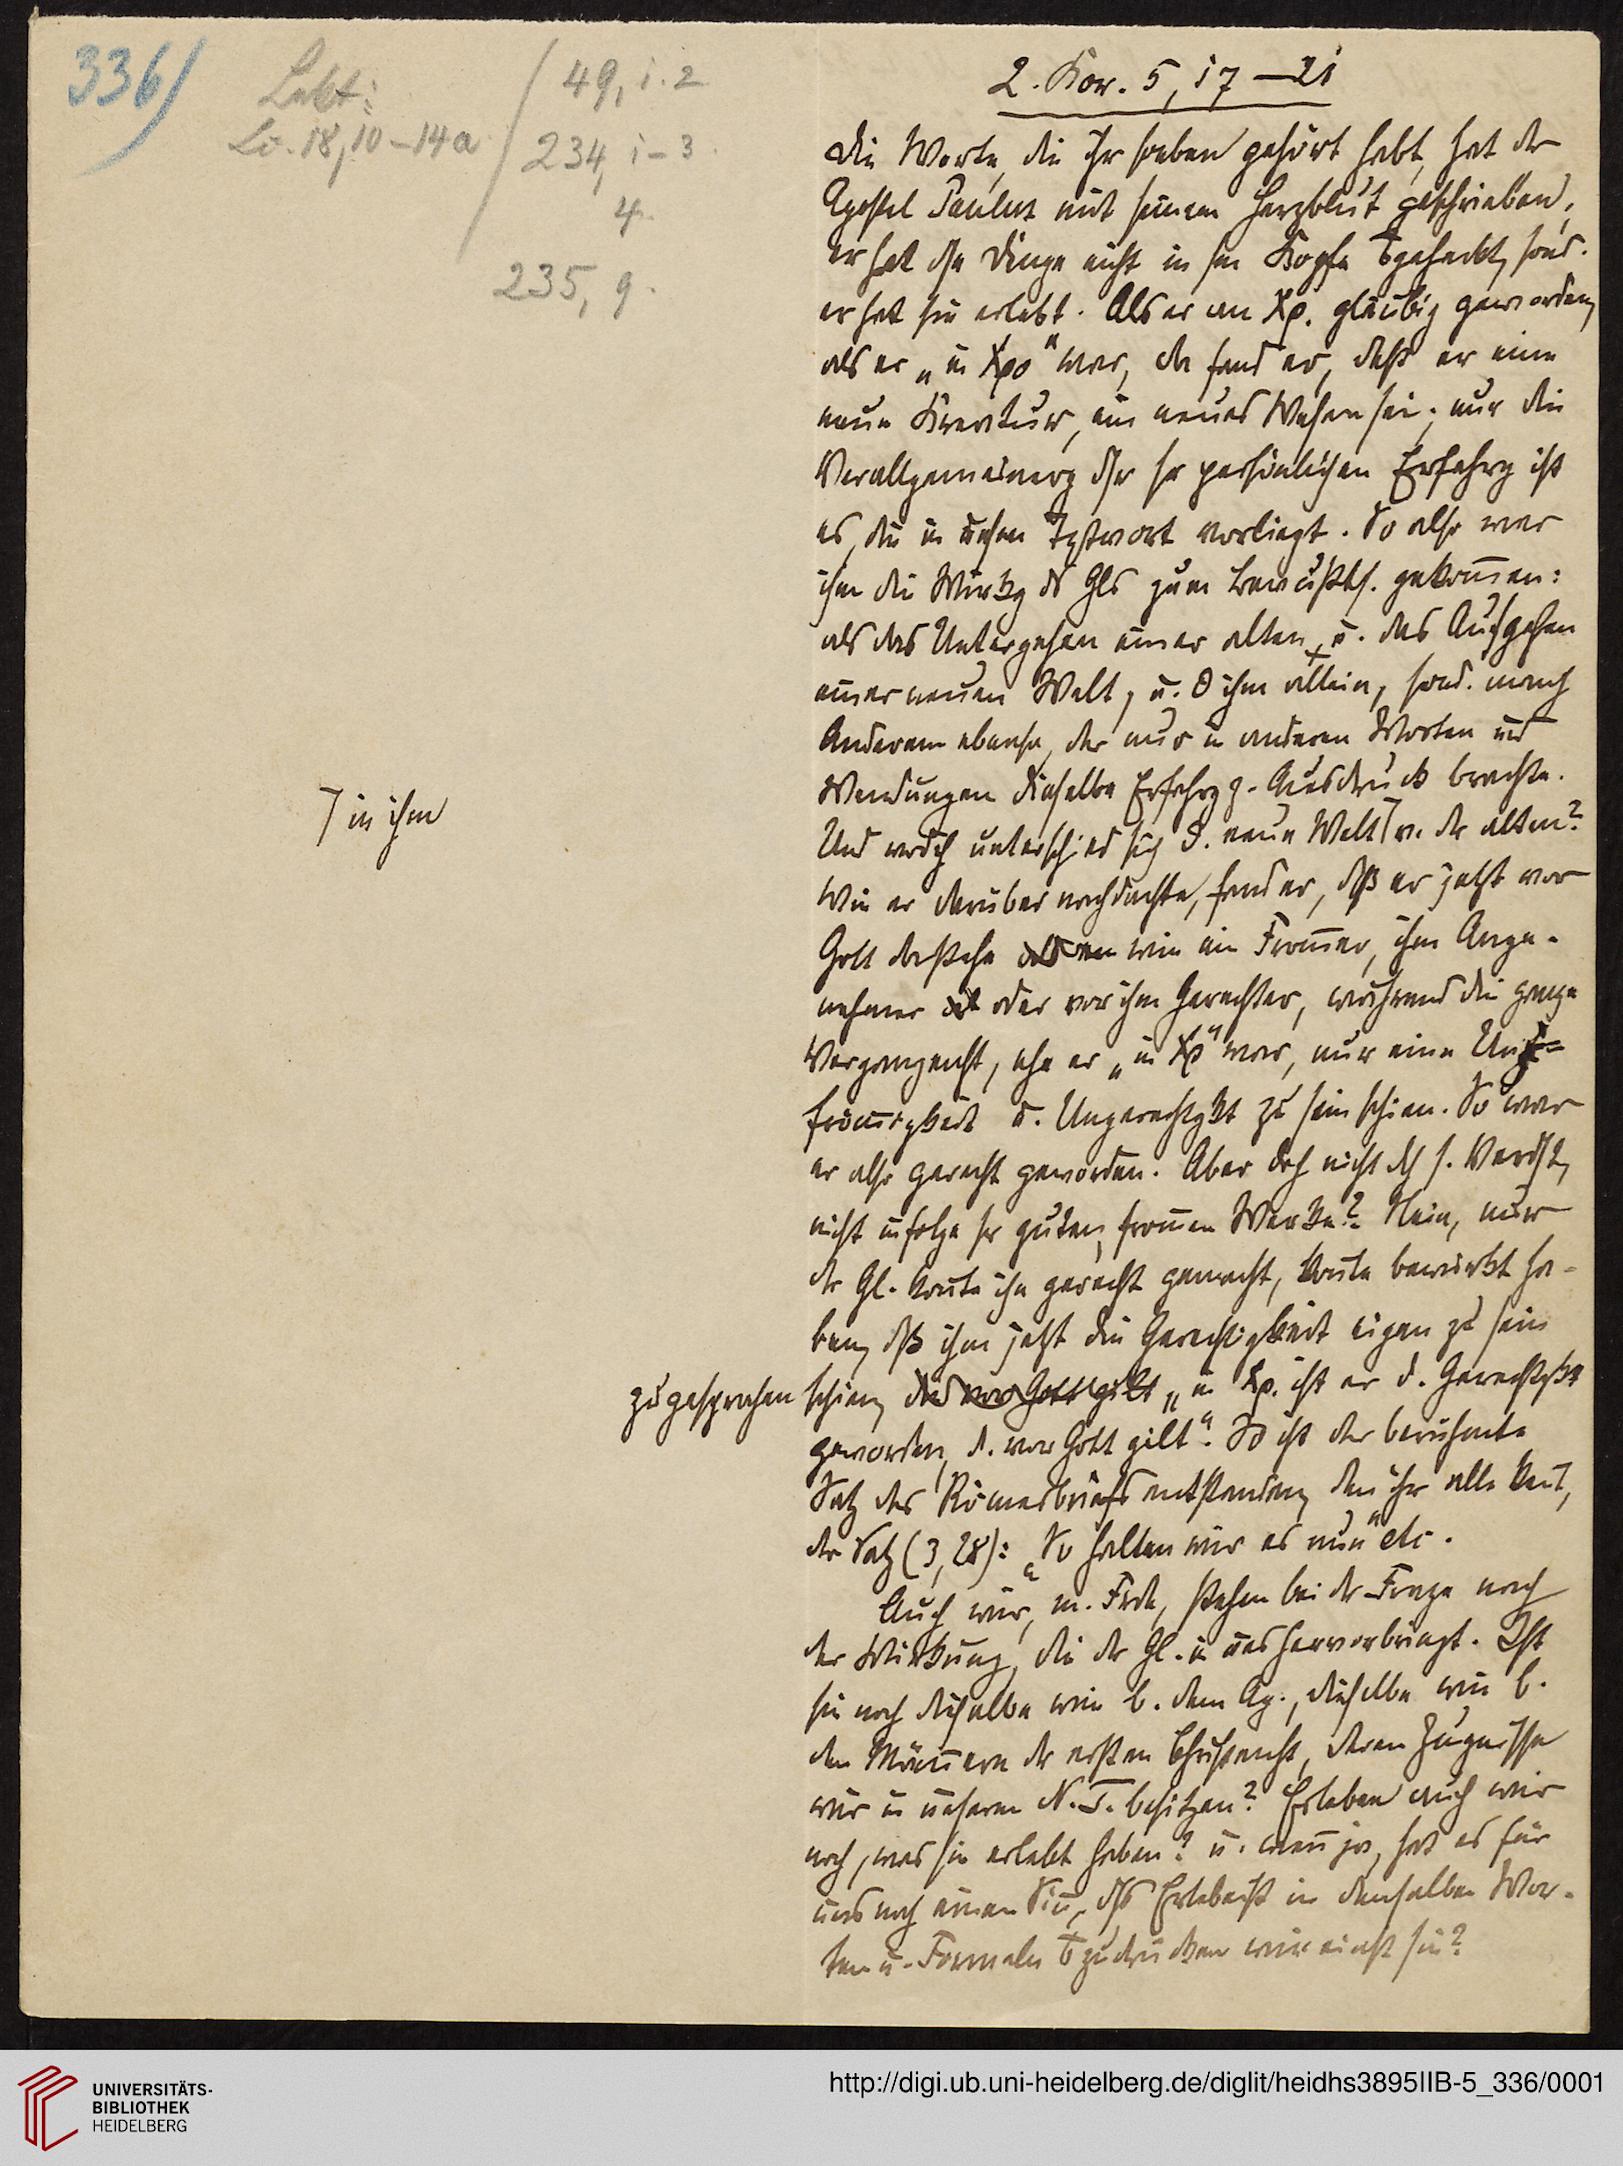 336)
Lekt:
Lc. 18,10-14a
49, 1. 2
234, 1-3.
4.
235, 9.
2. Kor. 5, 17-21
Die Worte, die ihr soeben gehört habt, hat der
Apostel Paulus mit seinem Herzblut geschrieben;
er hat die Dinge nicht in sm Kopfe geheckt, sond.
er hat sie erlebt. Als er an Xp. gläubig geworden,
als er „in Xpo" war, da fand er, daß er eine
neue Kreatur, ein neues Wesen sei; nur die
Verallgemeinerg dsr sr persönlichen Erfahrg ist
es, die in unsem Textwort vorliegt. So also war
ihm die Wirkg ds Gls zum Bewußts. gekom̄en:
als das Untergehen einer alten, u. das Aufgehen
einer neuen Welt, u. ihm allein, sond. manch
Anderem ebenso, der nur in anderen Worten und
Wendungen dieselbe Erfahrg z. Ausdruck brachte.
Und wodch unterschied sich d. neue Welt v. der alten?
⁊ in ihm
Wie er darüber nachdachte, fand er, dß er jetzt vor
Gott dastehe wie ein From̄er, ihm Ange-
nehmer oder vor ihm Gerechter, während die ganze
Vergangenht, ehe er „in Xp" war, nur eine Un-
fröm̄igkeit u. Ungerechtgkt zu sein schien. So war
er also gerecht geworden. Aber doch nicht dch s. Verdst,
nicht infolge sr guten, from̄en Werke? Nein, nur
der Gl. kon̄te ihn gerecht gemacht, kon̄te bewirkt ha-
ben, dß ihm jetzt die Gerechtigkeit eigen zu sein
zugesprochen
schien, die vor Gott gilt „in Xp. ist er d. Gerechtgkt
geworden, d. vor Gott gilt". So ist der berühmte
Satz des Römerbriefs entstanden, den ihr alle ken̄t,
der Satz (3,28): „So halten wir es nun" etc.
Auch wir, m. Frde, stehen bei der Frage nach
der Wirkung, die der Gl. in uns hervorbringt. Ist
sie noch dieselbe wie b. dem Ap., dieselbe wie b.
den Män̄ern der ersten Christenht, deren Zeugnisse
wir in unserem N.T. besitzen? Erleben auch wir
noch, was sie erlebt haben? u. wen̄ ja, hat es für
uns noch einen Sin̄, dß Erlebniß in denselben Wor-
ten u. Formeln zudrücken wie einst sie?
UNIVERSITÄTS-
BIBLIOTHEK
HEIDELBERG
http://digi.ub.uni-heidelberg.de/diglit/heidhs3895IIB-5_336/0001